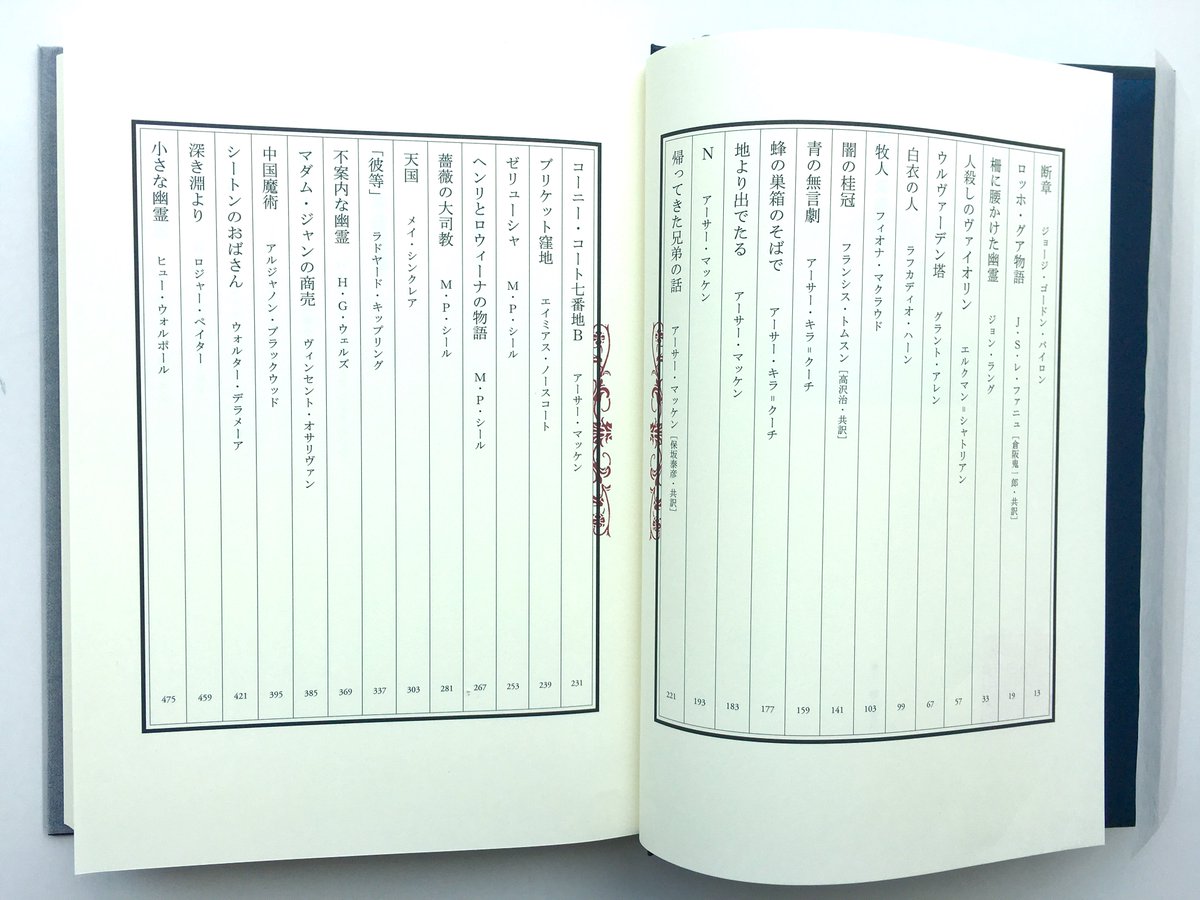 断章　ジョージ・ゴードン・バイロン　13
ロッホ・グア物語　J・S・レ・ファニュ［倉阪鬼一郎・共訳］　19
柵に腰かけた幽霊　ジョン・ラング　33
人殺しのヴァイオリン　エルクマン=シャトリアン　57
ウルヴァーデン塔　グラント・アレン　67
白衣の人　ラフカディオ・ハーン　99
牧人　フィオナ・マクラウド　103
闇の桂冠　フランシス・トムスン［高沢治・共訳］　141
青の無言劇　アーサー・キラ=クーチ　159
蜂の巣箱のそばで　アーサー・キラ=クーチ　177
地より出でたる　アーサー・マッケン　183
N　アーサー・マッケン　193
帰ってきた兄弟の話　アーサー・マッケン［保坂泰彦・共訳］　221
コーニー・コート七番地B　アーサー・マッケン　231
ブリケット窪地　エイミアス・ノースコート　239
ゼリューシャ　M・P・シール　253
ヘンリとロウィーナの物語　M・P・シール　267
薔薇の大司教　M・P・シール　281
天国　メイ・シンクレア　303
「彼等」　ラドヤード・キップリング　337
不案内な幽霊　H・G・ウェルズ　369
マダム・ジャンの商売　ヴィンセント・オサリヴァン　385
中国魔術　アルジャノン・ブラックウッド　395
シートンのおばさん　ウォルター・デラメーア　421
深き淵より　ロジャー・ペイター　459
小さな幽霊　ヒュー・ウォルポール　475